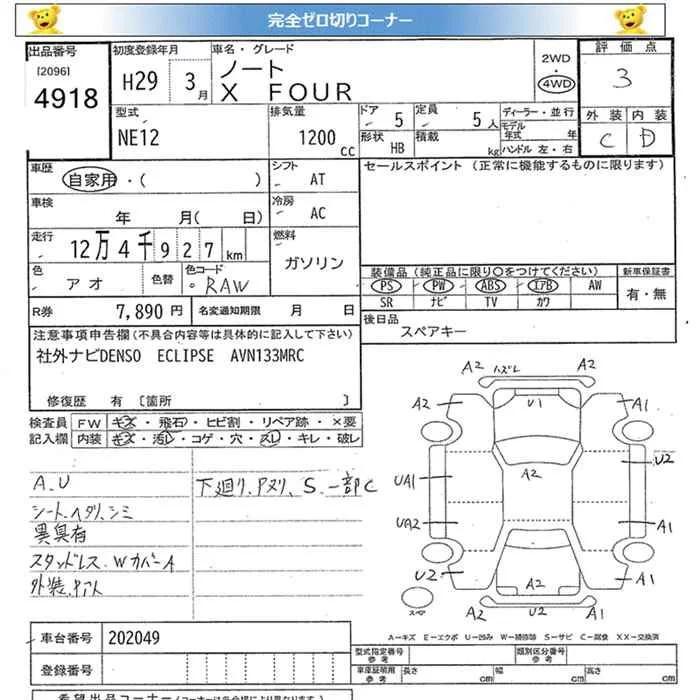 完全ゼロ切りコーナー
出品番号
[2096]
4918
初度登録年月
H29 3月
車名・グレード
ノート
X FOUR
2WD
4WD
評価点
3
外装 内装
C D
型式
NE12
排気量
1200 cc
ドア 5
定員 5人
形状 HB
積載 kg
ディーラー・並行
モデル年式 年
ハンドル 左・右
車歴
自家用・( )
シフト
AT
セールスポイント (正常に機能するものに限ります)
車検
年 月( 日)
冷房
AC
走行
12万4千927km
燃料
ガソリン
色
アオ
色替
色コード
RAW
装備品 (純正品に限り○をつけてください)
PS PW ABS エアB AW
SR ナビ TV カワ
新車保証書
有・無
R券 7,890 円
名変通知期限 月 日
後日品
スペアキー
注意事項申告欄 (不具合内容等は具体的に記入して下さい)
社外ナビDENSO ECLIPSE AVN133MRC
修復歴 有 〔箇所 〕
検査員記入欄
FW キズ・飛石・ヒビ割・リペア跡・×要
内装 キズ・汚レ・コゲ・穴・スレ・キレ・破レ
A.U
シートヘタリ、シミ
異臭有
スタッドレス、WカバーA
下廻り、Pヌリ、S、一部C
A2 ハズレ A2
A2 U1 A1
U2
A2
UA1
UA2 A1
U2 A2 A1
スペア
A2 U2 A1
A-キズ E-エクボ U-凹み W-補修跡 S-サビ C-腐食 XX-交換済
車台番号 202049
登録番号
型式指定番号 参考
類別区分番号 参考
車庫証明用 参考 長さ cm 幅 cm 高さ cm
希望出品コーナー